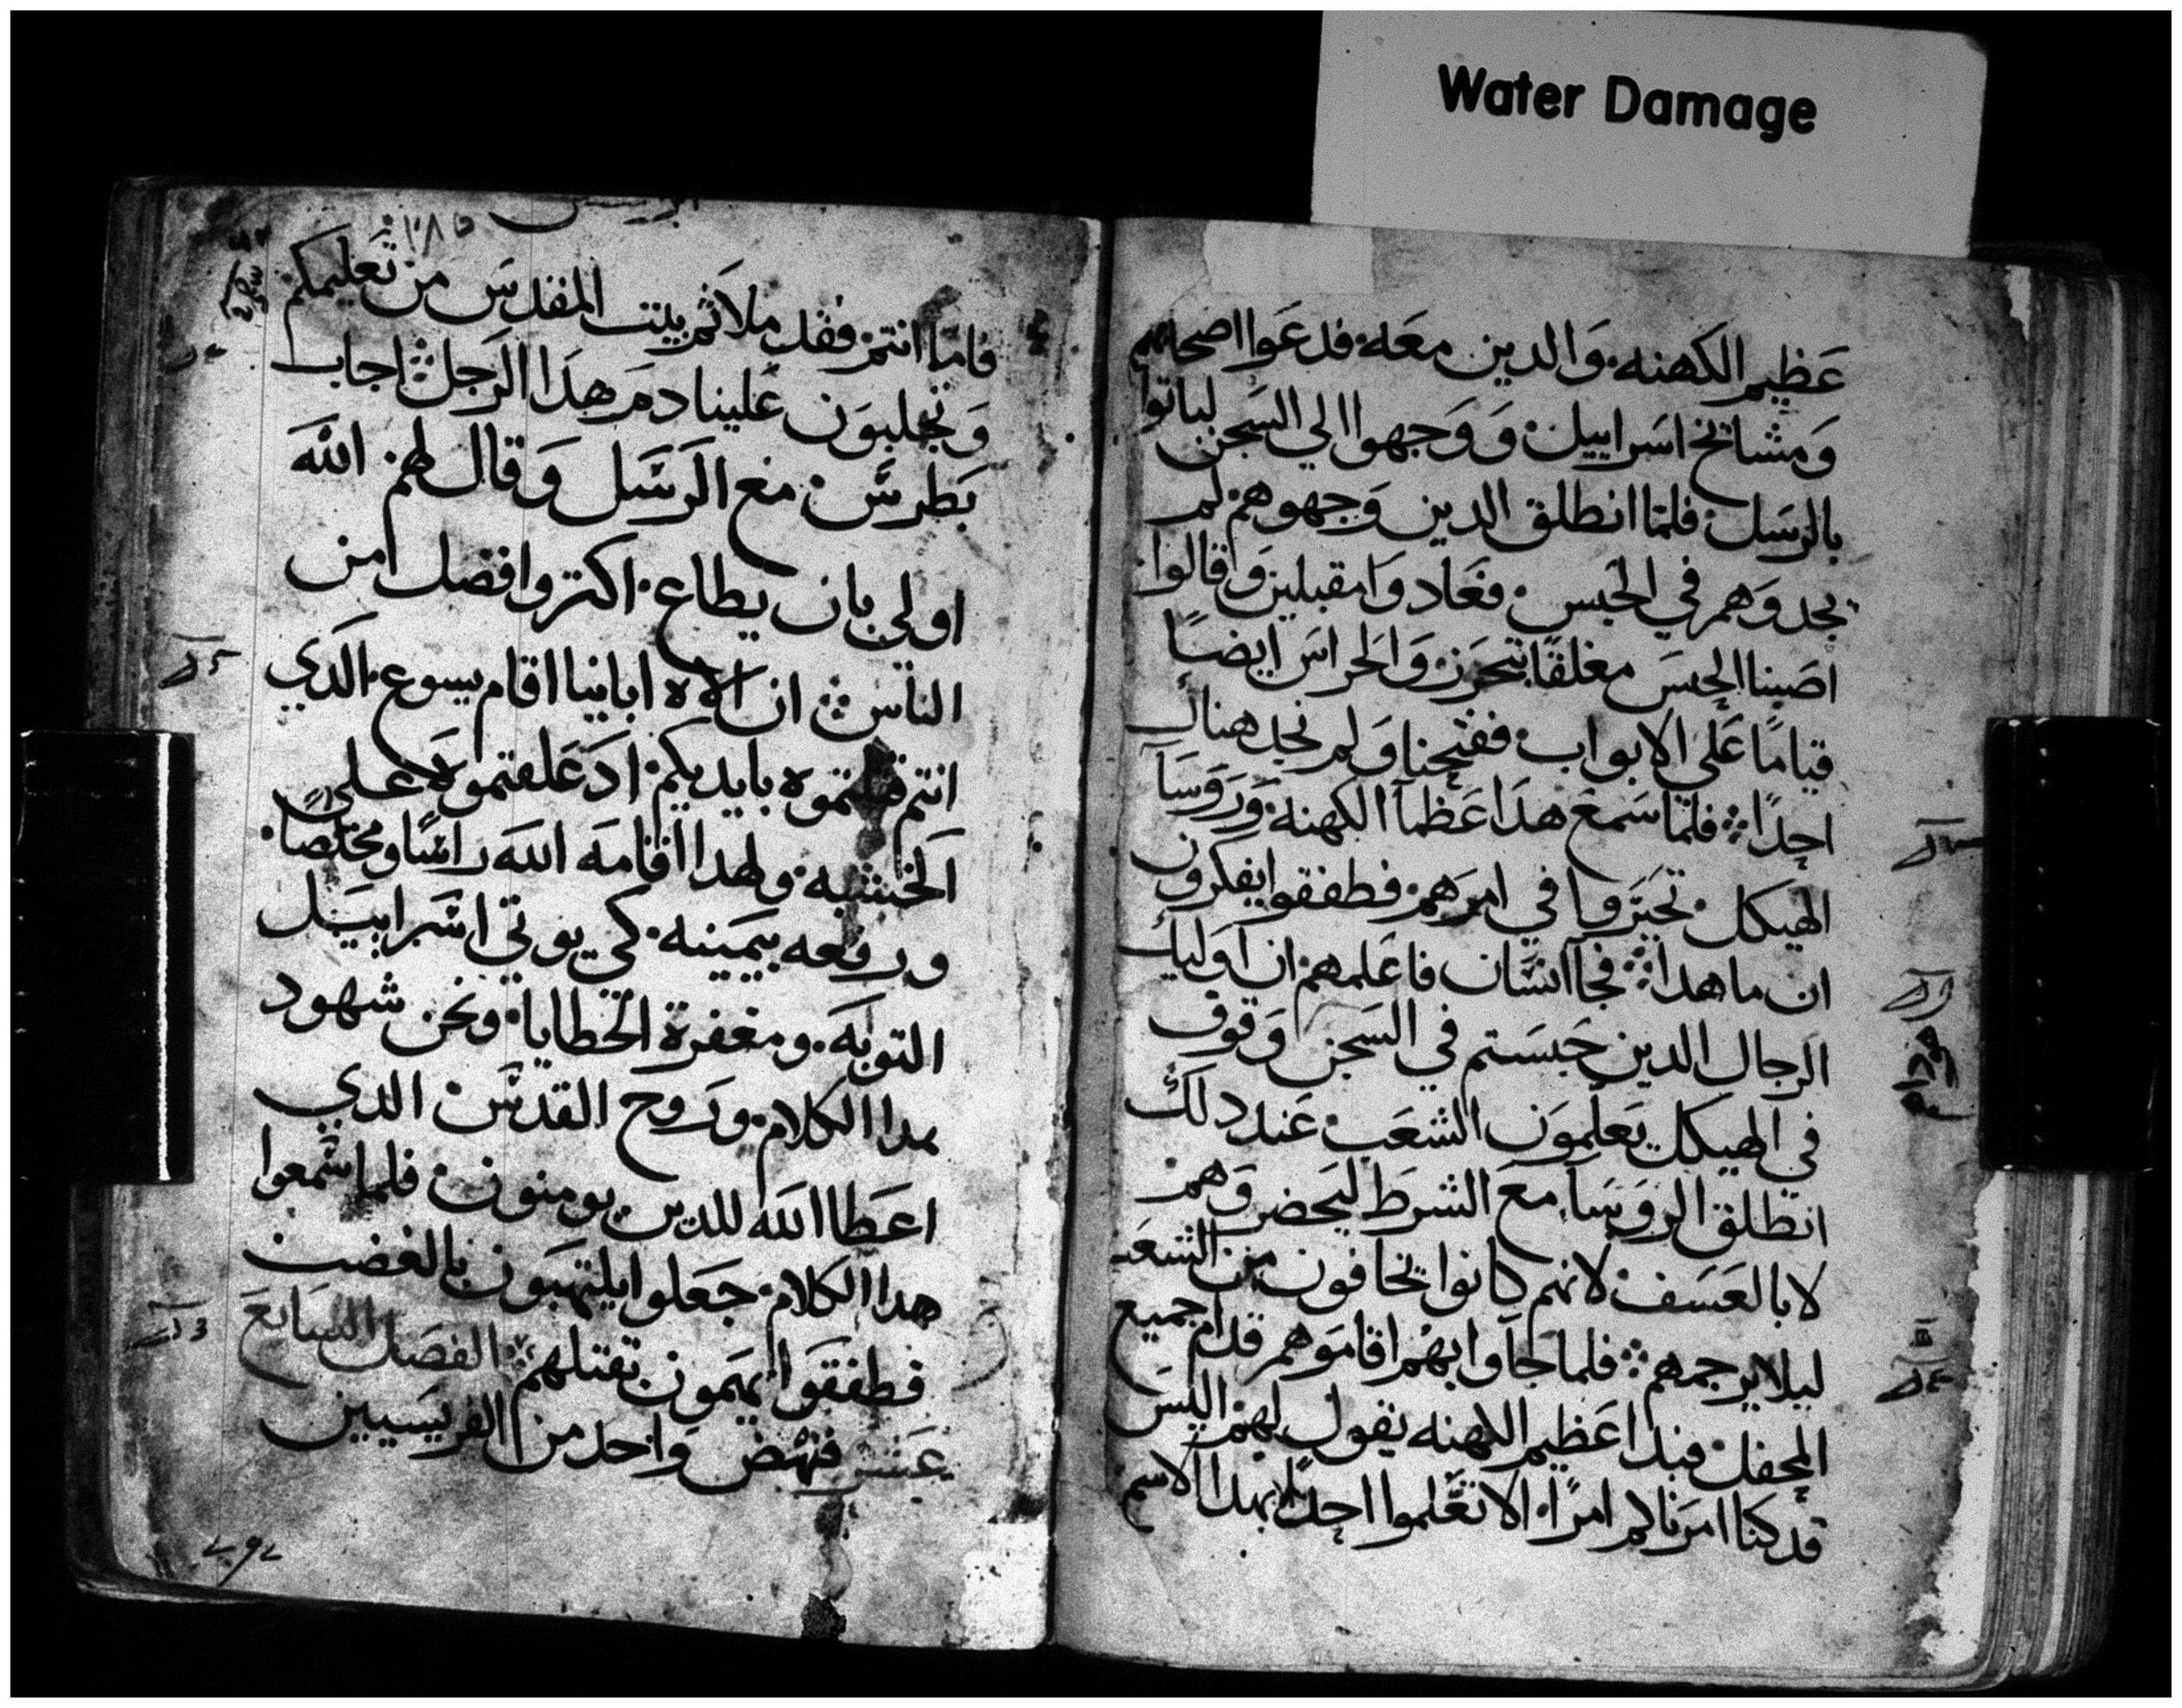 Water Damage
عظيم الكهنه. والدين معه. فدعوا اصحابهم
ومشايخ اسراييل. ووجهوا الي السجن لياتوا
بالرسل. فلما انطلق الدين وجهوهم. لم
يجدوهم في الحبس. فعادوا مقبلين وقالوا.
اصبنا الحبس مغلقًا بتحرز. والحراس ايضًا
قيامًا علي الابواب. ففتحنا ولم نجد هناك
احدًا. فلما سمع هدا عظما الكهنه. وروسا
الهيكل. تحيروا في امرهم. فطفقوا يفكرون
ان ما هدا. فجا انسان فاعلمهم. ان اوليك
الرجال الدين حبستم في السجن وقوف
في الهيكل يعلمون الشعب. عند دلك
انطلق الروسا. مع الشرط ليحضروهم
لا بالعسف. لانهم كانوا يخافون من الشعب
ليلا يرجمهم. فلما جاوا بهم اقاموهم قدام جميع
المحفل. فبدا عظيم الكهنه يقول لهم. اليس
قد كنا امرناكم امرًا. الا تعلموا احدًا بهدا الاسم
١٨٥
فاما انتم. فقد ملاتم بيت المقدس من تعليمكم
وتجلبون علينا دم هدا الرجل. اجاب
بطرس. مع الرسل وقال لهم. الله
اولي بان يطاع. اكتر وافضل من
الناس. ان الاه ابانينا اقام يسوع. الدي
انتم قتلتموه بايديكم. اد علقتموه علي
الخشبه. ولهدا اقامه الله راسًا ومخلصًا.
ورفعه بيمينه. كي يوتي اسراييل
التوبه. ومغفرة الخطايا. ونحن شهود
بهدا الكلام. وروح القدس الدي
اعطا الله للدين يومنون. فلما سمعوا
هدا الكلام. جعلوا يلتهبون بالغضب
فطفقوا يهمون بقتلهم. الفصل السابع
عشر فنهض واحد من الفريسيين